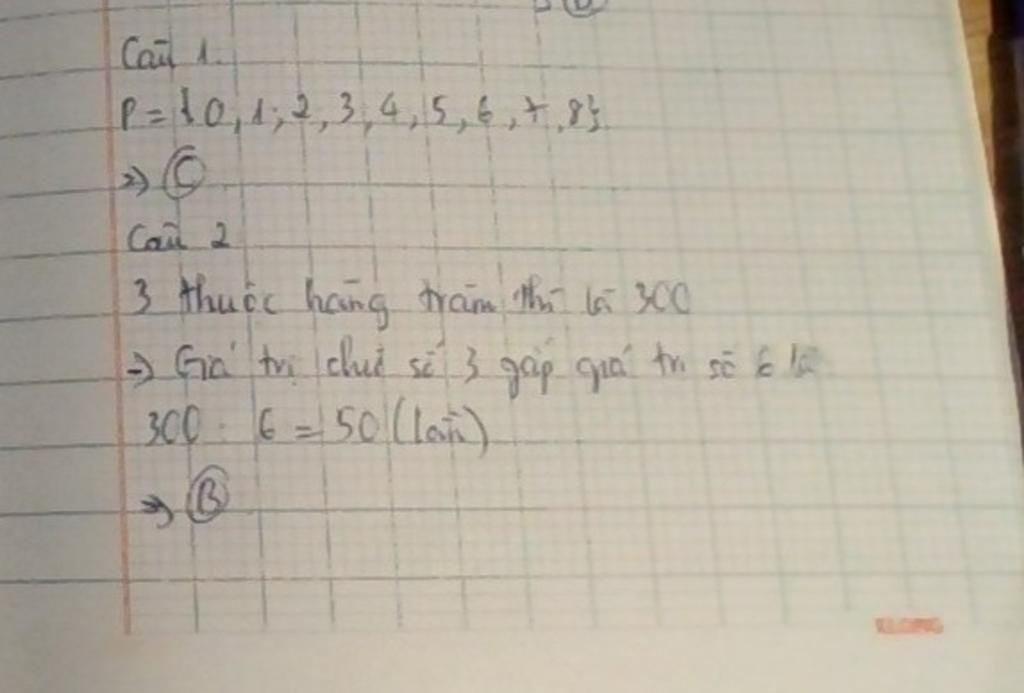 Câu 1.
P = { 0, 1; 2, 3, 4, 5, 6, 7, 8}
=> C
Câu 2
3 thuộc hàng trăm thì là 300
=> Giá trị chữ số 3 gấp giá trị số 6 là
300 : 6 = 50 (lần)
=> B
KLONG